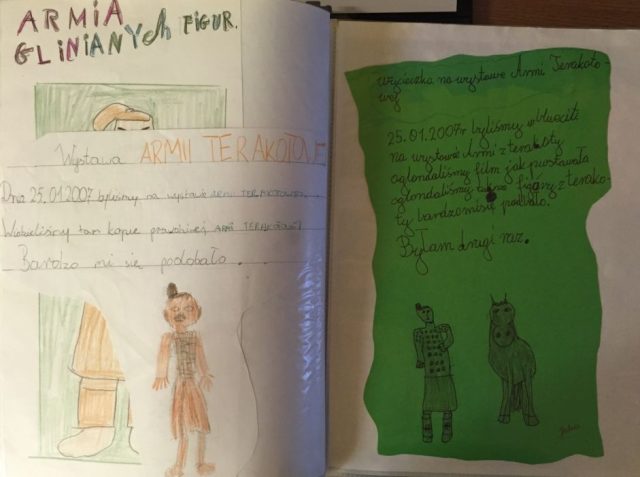 ARMIA
GLINIANYCH FIGUR.
Wystawa ARMII TERAKOTOWEJ
Dnia 25.01.2007 byliśmy na wystawie ARMI TERAKTOWEJ.
Widzieliśmy tam kopie prawdziwej ARMI TERAKTOWEJ
Bardzo mi się podobało.
Wycieczka na wystawe Armi Terakoto-
wej
25.01.2007r byliśmy w
na wystawie Armi z terakoty
oglondaliśmy film jak powstawała
oglondaliśmy figory z terako-
ty bardzo misie podobało.
Byłam drugi raz.